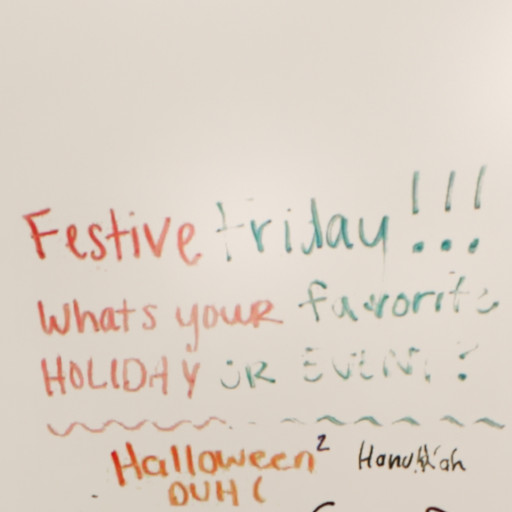 Festive Friday!!!
Whats your favorite
HOLIDAY OR EVENT?
Halloween² Hanukkah
DUH (